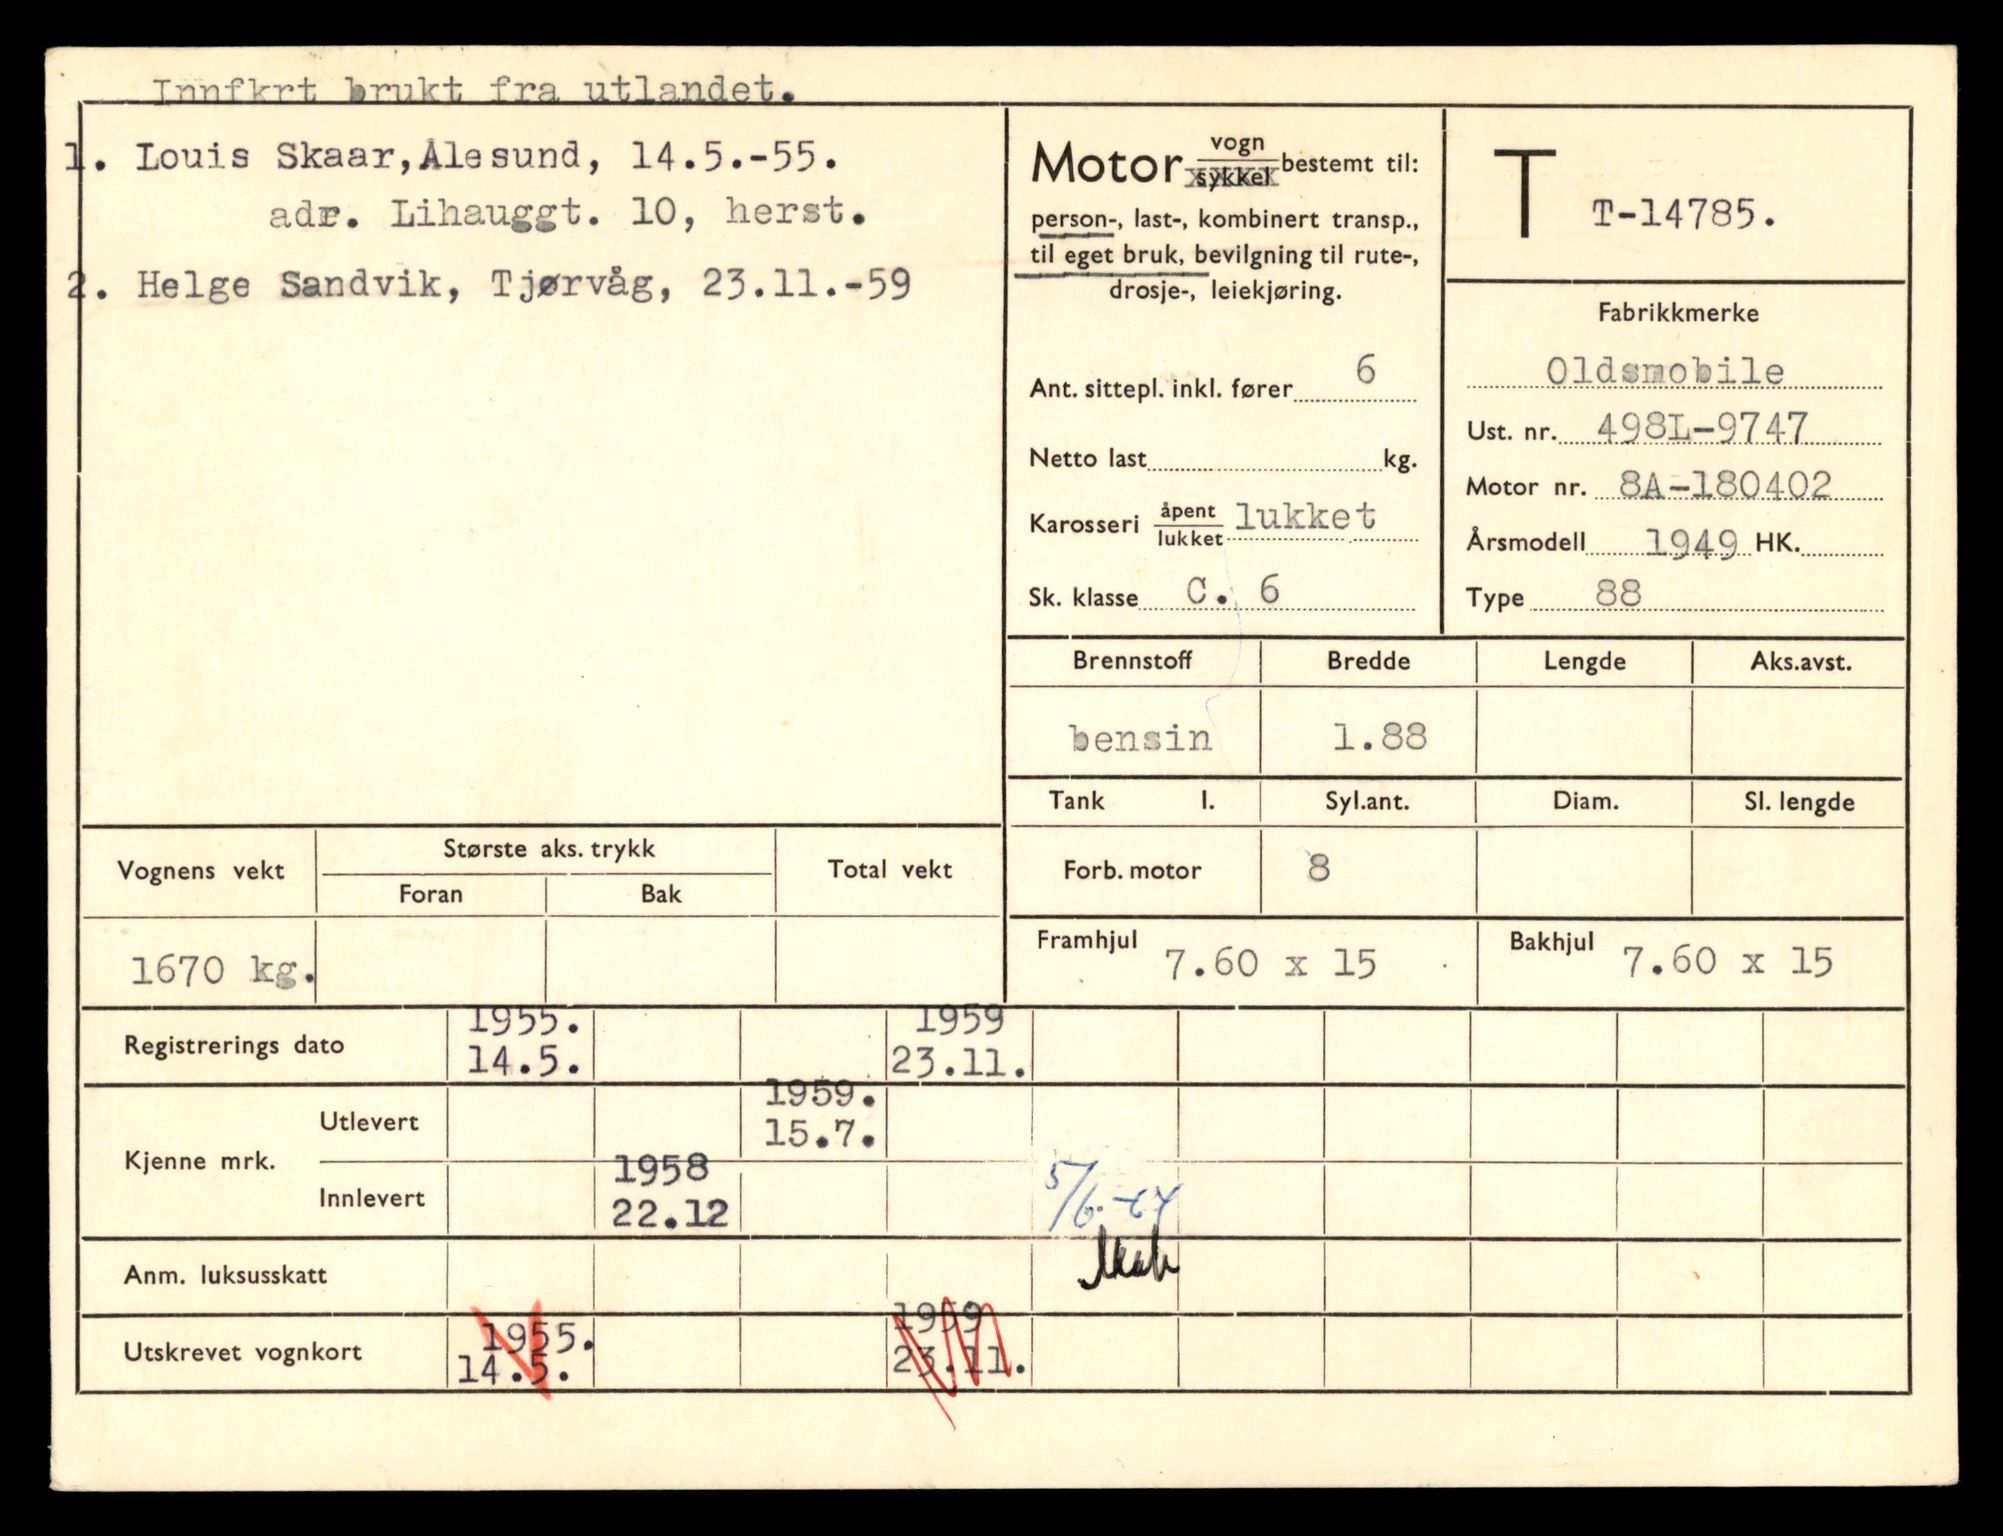 Innfkrt brukt fra utlandet.
1. Louis Skaar, Ålesund, 14.5.-55.
adr. Lihauggt. 10, herst.
2. Helge Sandvik, Tjørvåg, 23.11.-59
Motor vogn / sykkel bestemt til:
person-, last-, kombinert transp.,
til eget bruk, bevilgning til rute-,
drosje-, leiekjøring.
Ant. sittepl. inkl. fører 6
Netto last kg.
Karosseri åpent / lukket lukket
Sk. klasse C. 6
T T-14785.
Fabrikkmerke
Oldsmobile
Ust. nr. 498L-9747
Motor nr. 8A-180402
Årsmodell 1949 HK.
Type 88
Brennstoff Bredde Lengde Aks.avst.
bensin 1.88
Tank l. Syl.ant. Diam. Sl. lengde
Forb. motor 8
Framhjul 7.60 x 15 Bakhjul 7.60 x 15
Vognens vekt Største aks. trykk Total vekt
Foran Bak
1670 kg.
1955. 1959
Registrerings dato 14.5. 23.11.
1959.
Utlevert 15.7.
Kjenne mrk.
1958
Innlevert 22.12 5/6.-64
Anm. luksusskatt
1955. 1959
Utskrevet vognkort 14.5. 23.11.